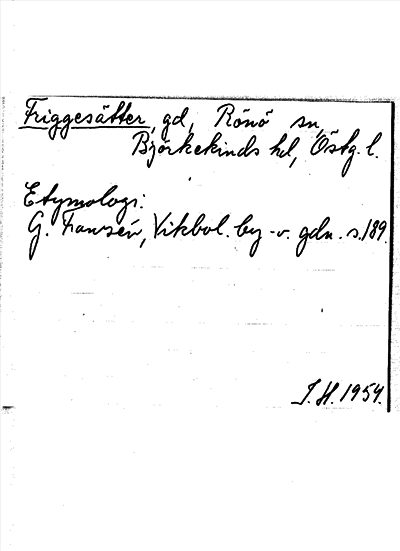 Friggesätter, gd, Rönö sn,
Björkekinds hd, Östg. l.
Etymologi:
G. Franzén, Vikbol. by- o. gdn. s. 189.
J. H. 1954.